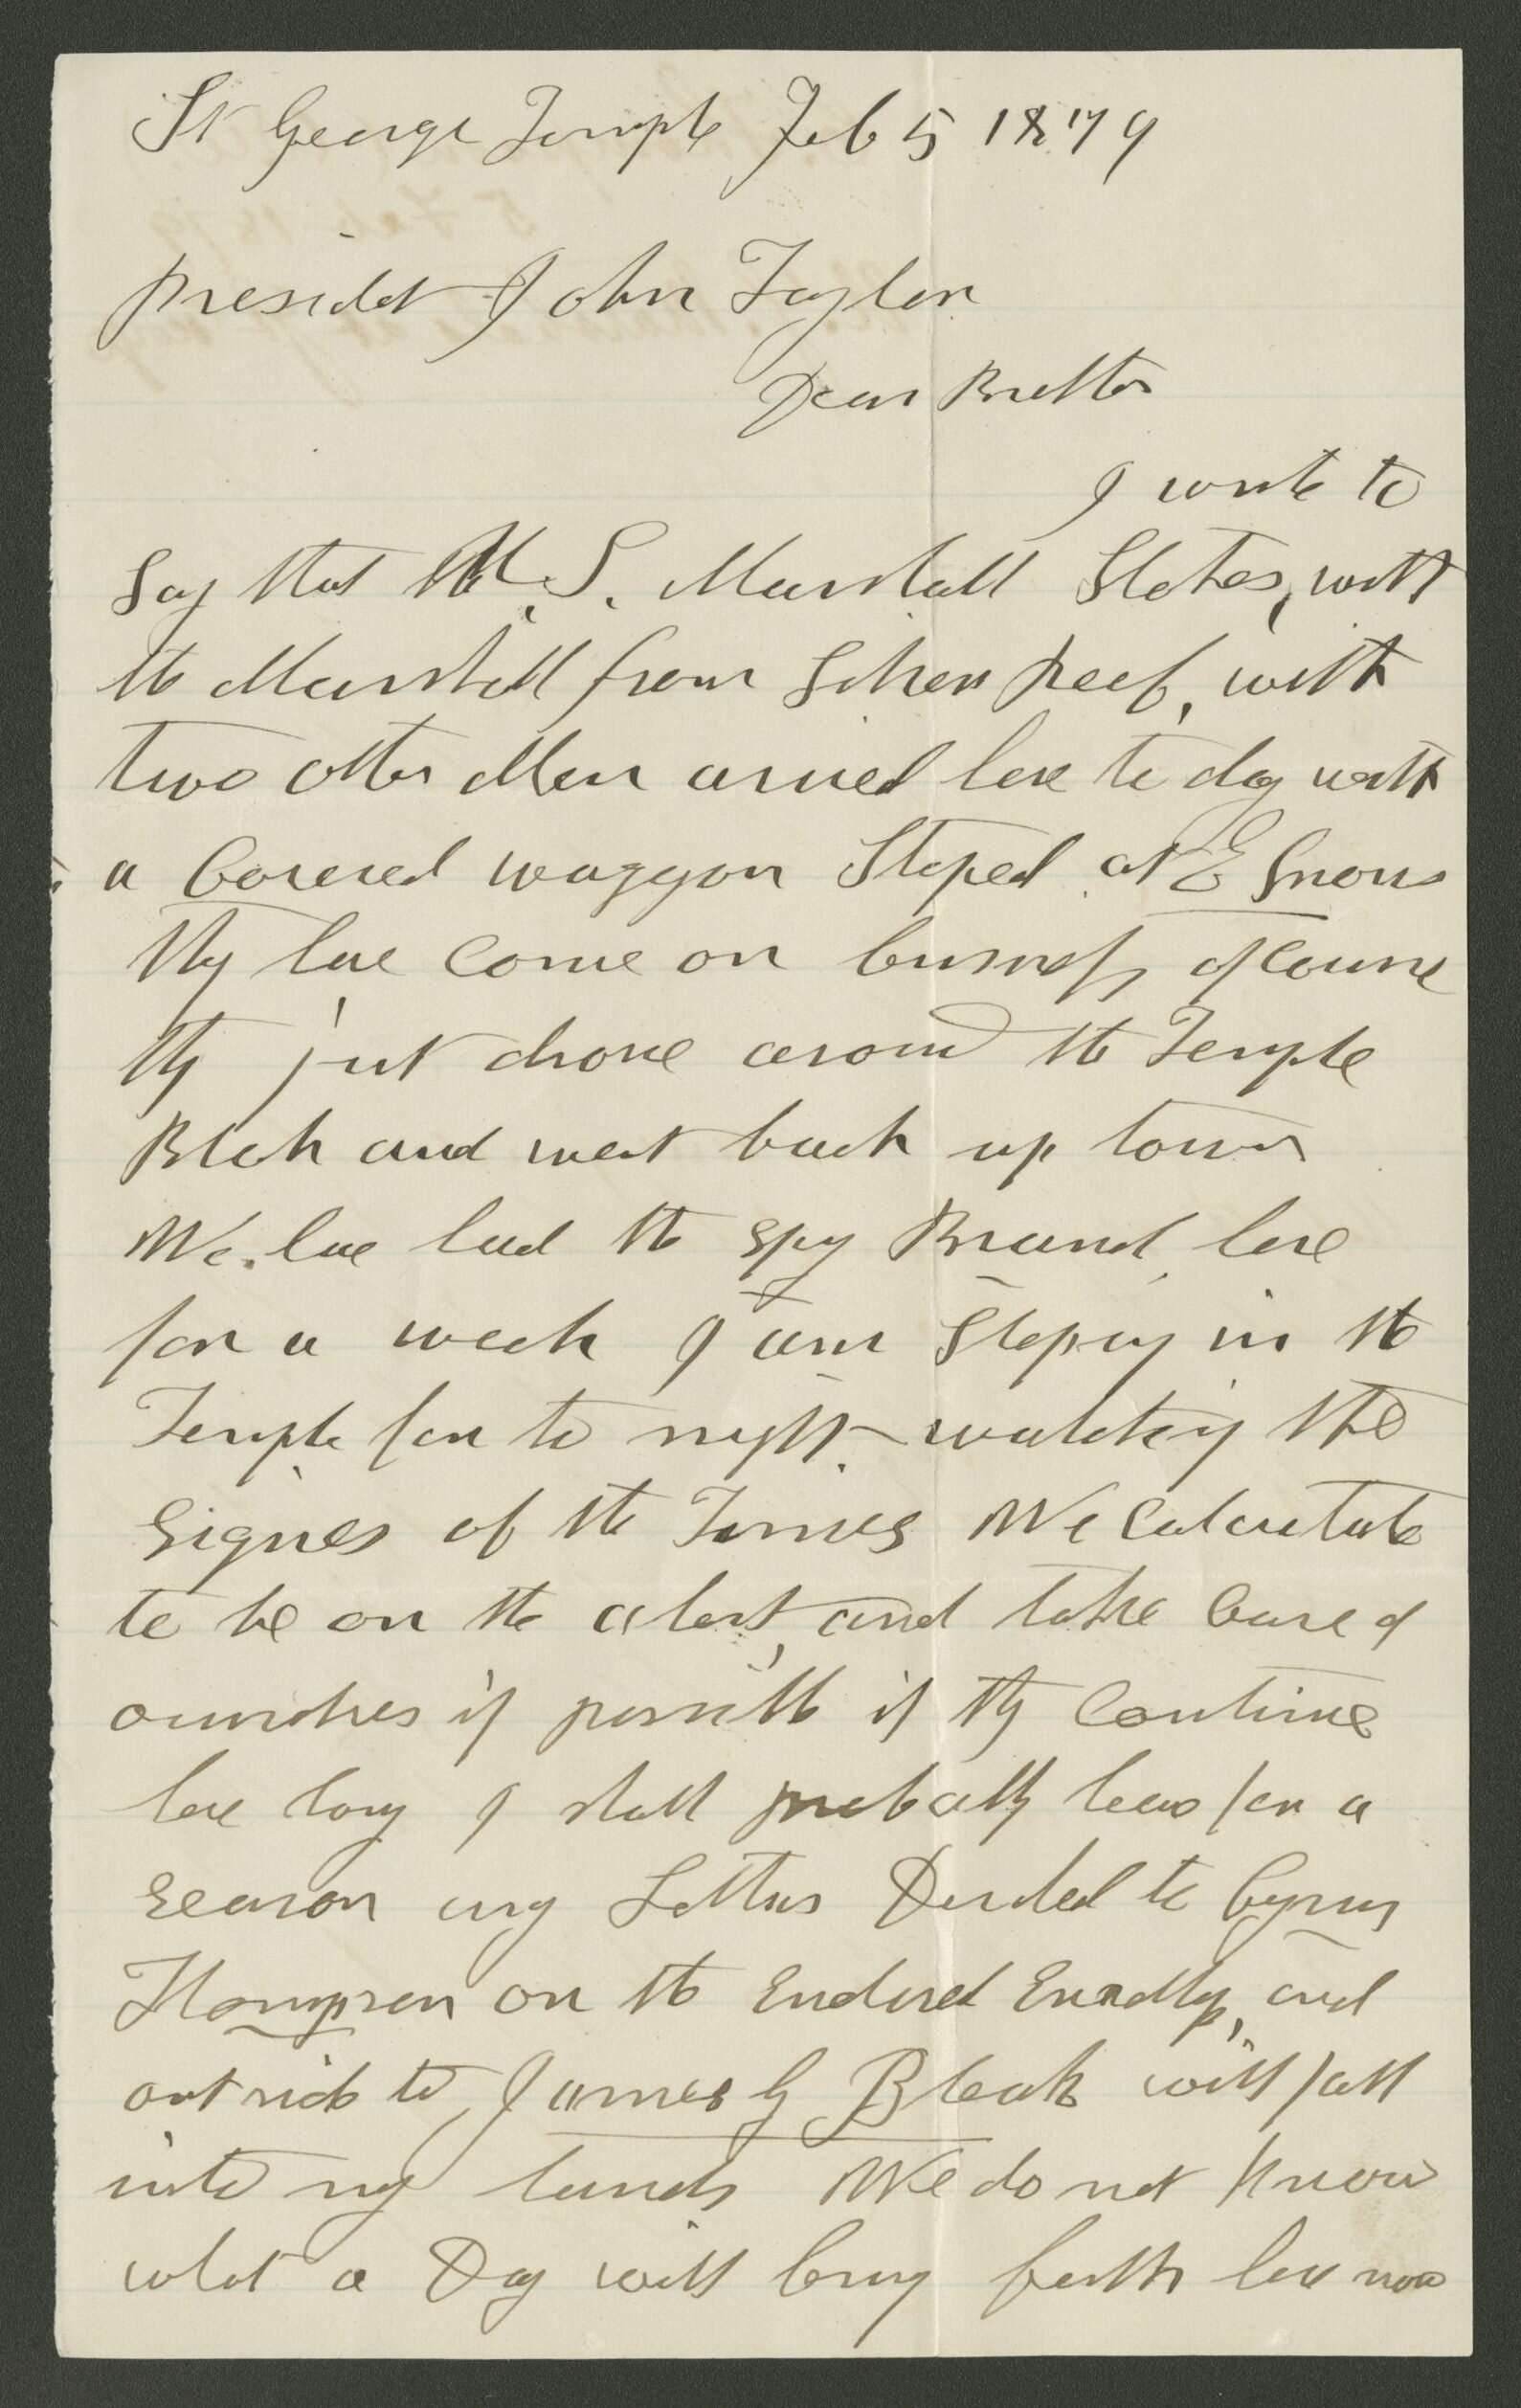 St George Temple Feb 5 1879
Presidet John Taylor
Dear Brother
I write to
Say that U.S. Marshall Stokes, with
the Marshall from Silver Reef, with
two other Men arived here to day with
a Covered waggon Stoped at E Snows
they have Come on business of Course
they just drove around the Temple
Block and went back up town
We have had the spy Brand here
for a week I am Stoping in the
Temple for to night watching the
Signes of the Times We Calculate
to be on the alert, and take Care of
ourselves if possible if they Continue
here long I shall probably leave for a
Season any Letters Derded to Cyrus
Thompson on the Enclosed Envellop, and
out side to James G Bleak will fall
into my hands We do not know
what a Day will bring forth here now